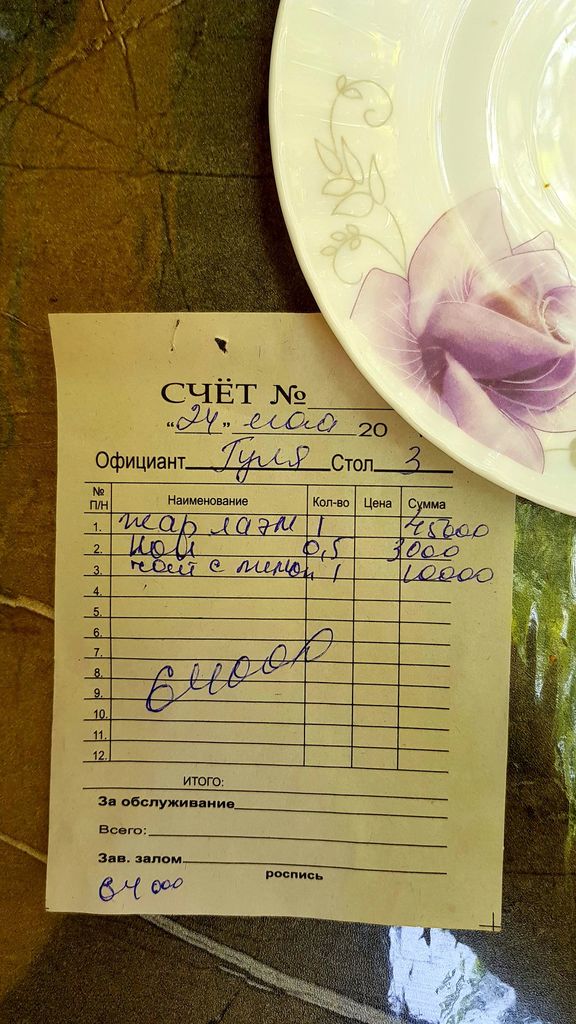 СЧЁТ №
"24" мая 20
Официант Гуля Стол 3
№ П/Н Наименование Кол-во Цена Сумма
1. жар лагм 1 45000
2. нон 0,5 3000
3. чай с лимон 1 10000
4.
5.
6.
7.
8.
9.
10.
11.
12.
64000
ИТОГО:
За обслуживание
Всего:
Зав. залом
роспись
64 000